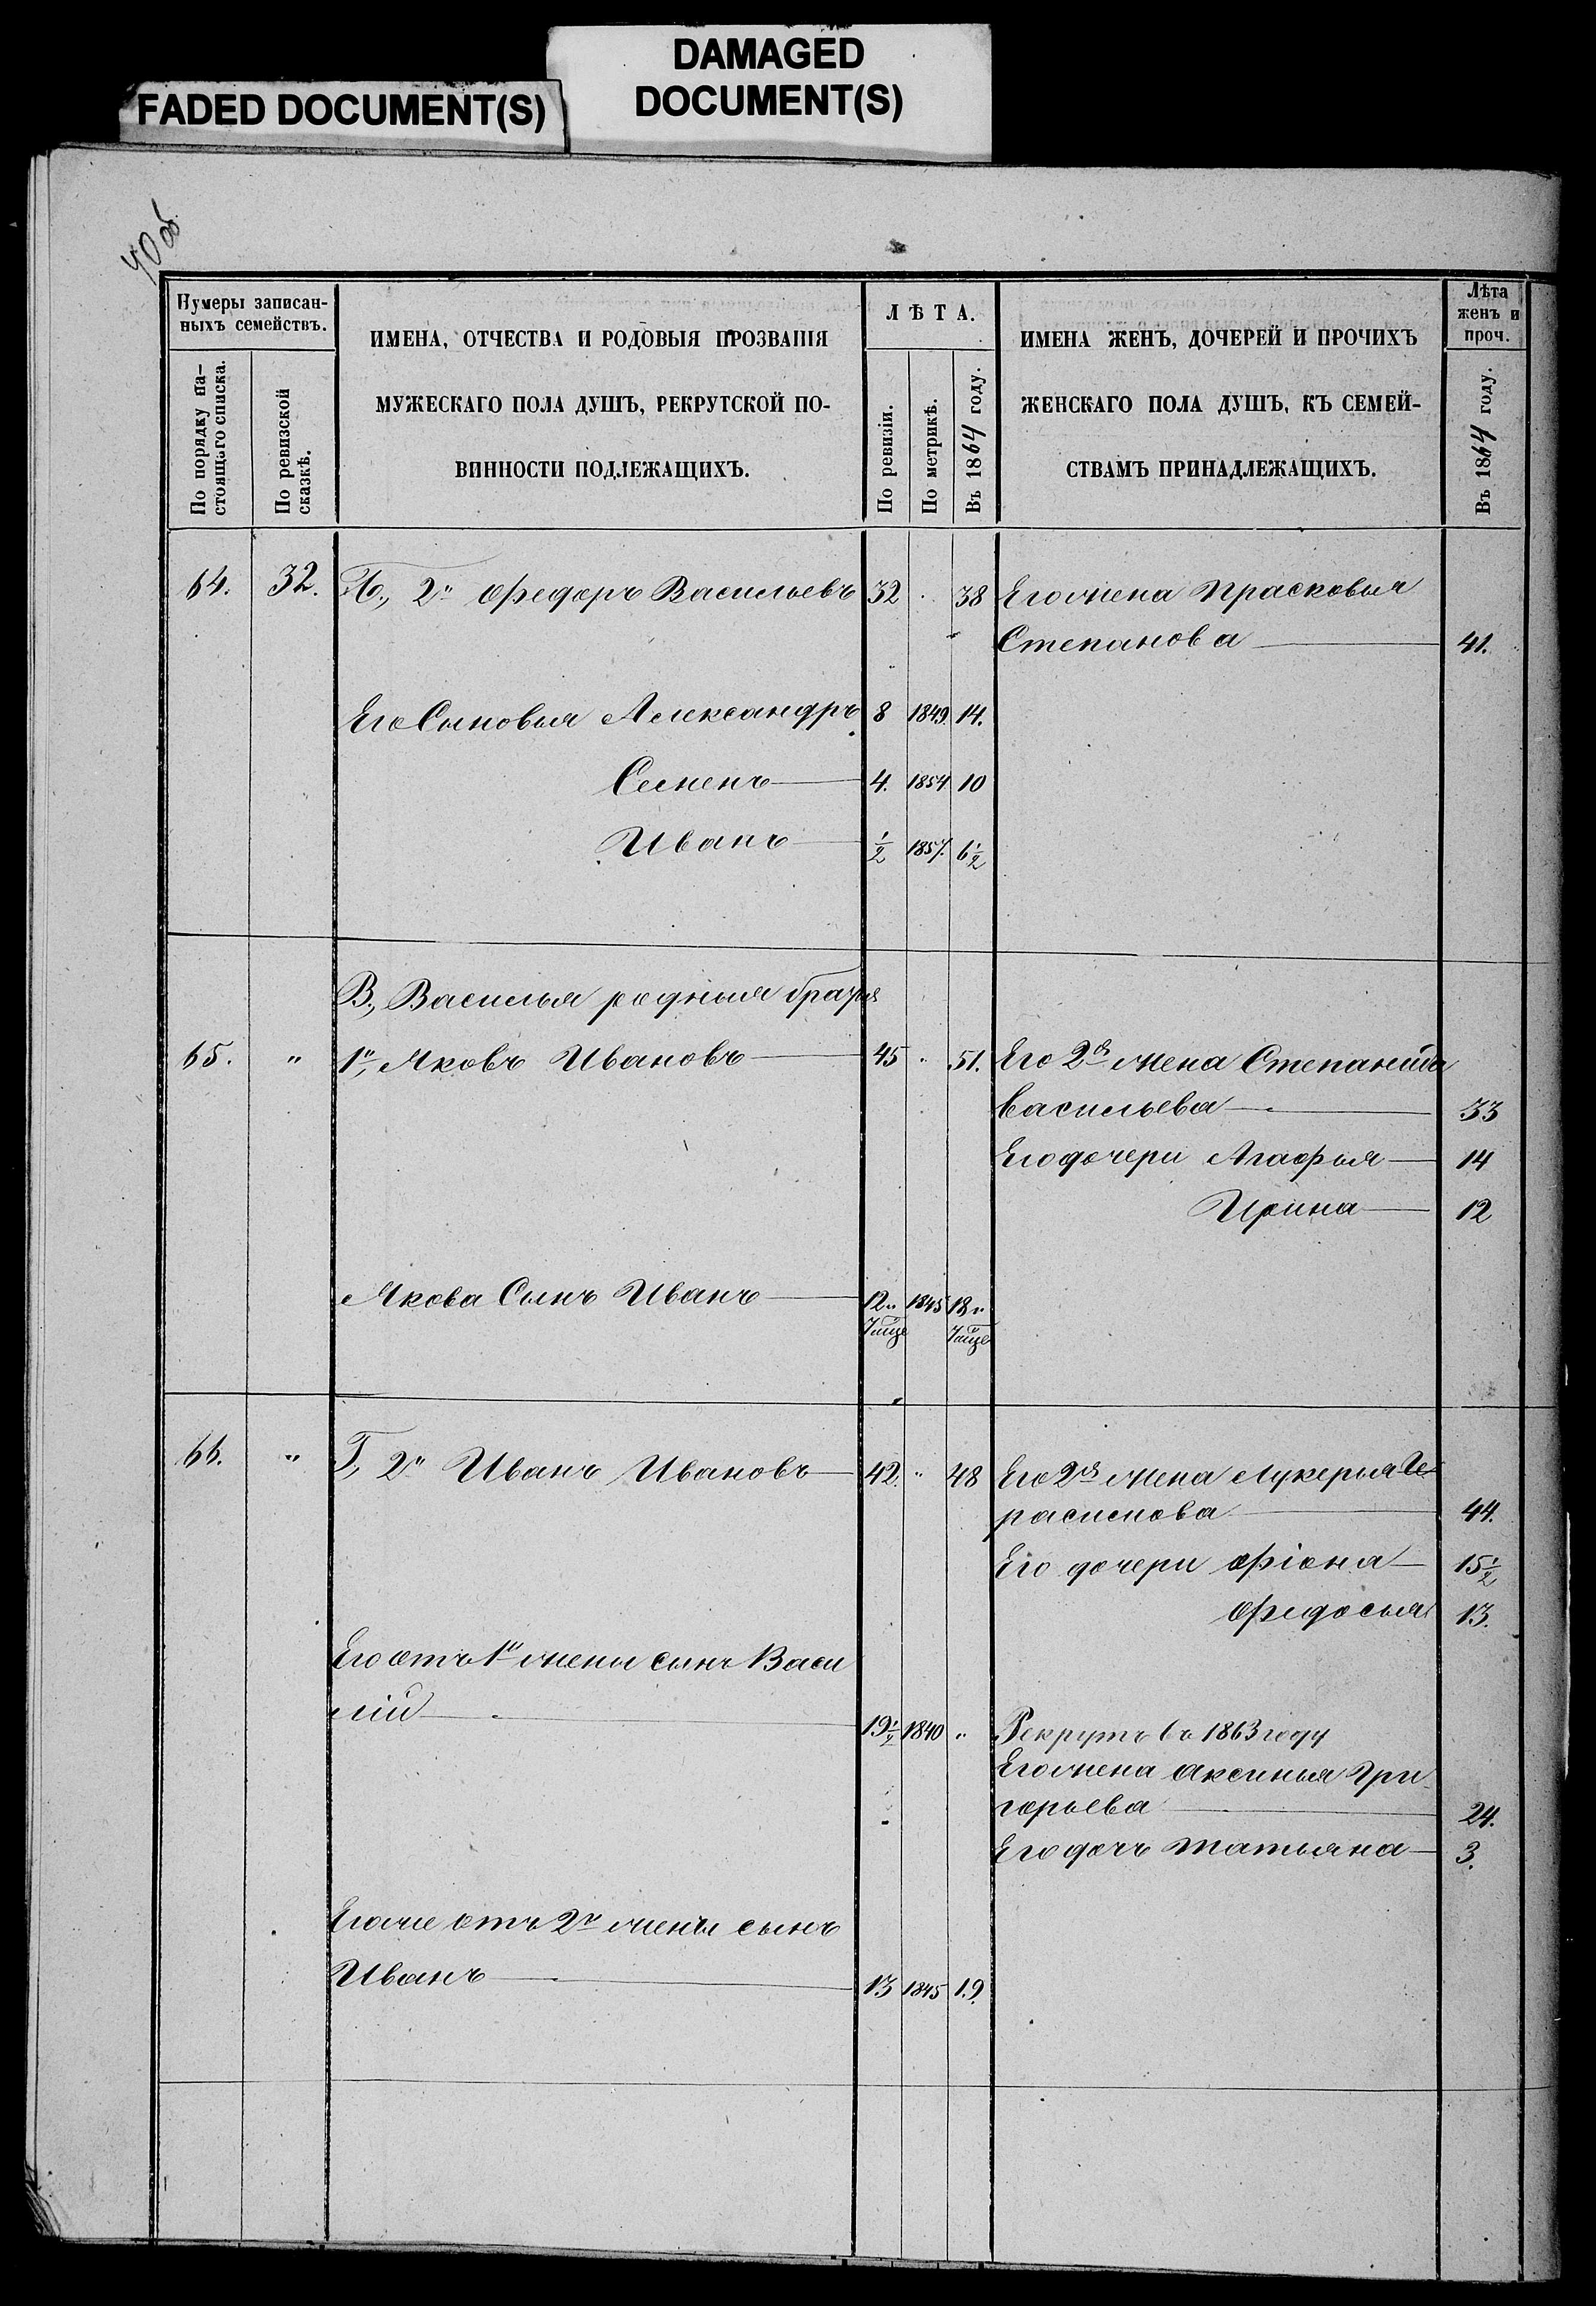 DAMAGED
DOCUMENT(S)
FADED DOCUMENT(S)
40 об.
Нумеры записан-
ныхъ семействъ.
По порядку на-
стоящаго списка.
По ревизской
сказкѣ.
ИМЕНА, ОТЧЕСТВА И РОДОВЫЯ ПРОЗВАНІЯ
МУЖЕСКАГО ПОЛА ДУШЪ, РЕКРУТСКОЙ ПО-
ВИННОСТИ ПОДЛЕЖАЩИХЪ.
ЛѢТА.
По ревизіи.
По метрикѣ.
Въ 1864 году.
ИМЕНА ЖЕНЪ, ДОЧЕРЕЙ И ПРОЧИХЪ
ЖЕНСКАГО ПОЛА ДУШЪ, КЪ СЕМЕЙ-
СТВАМЪ ПРИНАДЛЕЖАЩИХЪ.
Лѣта
женъ и
проч.
Въ 1864 году.
64. 32. 2й Федоръ Васильевъ 32 . 38 Его жена Прасковья
Степанова 41.
Его Сыновья Александръ 8 1849. 14.
Семенъ 4. 1854 10
Иванъ 1/2 1857. 6 1/2
В., Василья родныя братья
65. " 1й, Яковъ Ивановъ 45 " 51. Его 2я жена Степанида
Васильева 33
Его дочери Агафья 14
Ирина 12
Якова Сынъ Иванъ 12 и 1845 18 и
7 мце 7 мце
66. " Г, 2й Иванъ Ивановъ 42. " 48 Его 2я жена Лукерья Ге-
расимова 44.
Его дочери Фіона 15 1/2
Федосья 13.
Его отъ 1й жены сынъ Васи
лій 19 1/2 1840 " Рекрутъ въ 1863 году
Его жена Аксинья Гри-
горьева 24.
Его дочь Татьяна 3.
Егоже отъ 2й жены сынъ
Иванъ 13 1845 19.